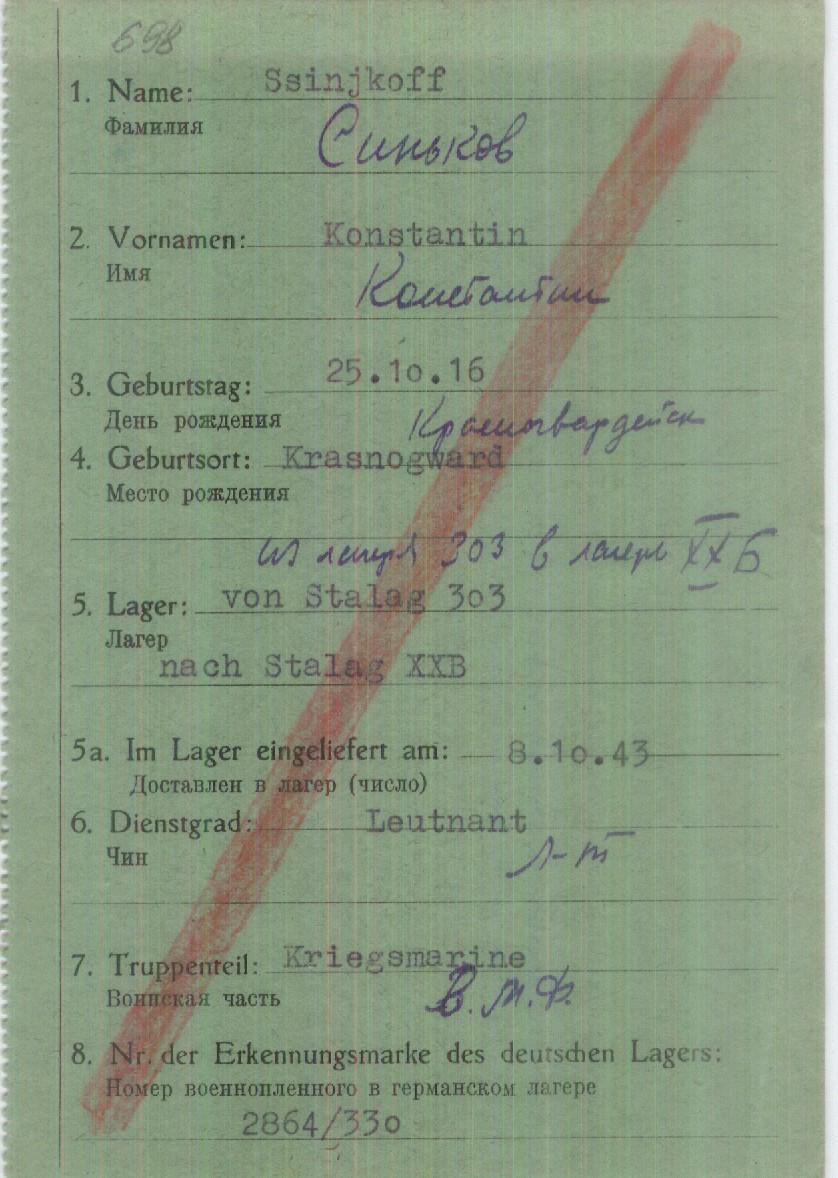 698
1. Name: Ssinjkoff
Фамилия
Синьков
2. Vornamen: Konstantin
Имя
Константин
3. Geburtstag: 25.10.16
День рождения
Красногвардейск
4. Geburtsort: Krasnogward
Место рождения
из лагеря 303 в лагерь XXБ
5. Lager: von Stalag 303
Лагер
nach Stalag XXB
5a. Im Lager eingeliefert am: 8.10.43
Доставлен в лагер (число)
6. Dienstgrad: Leutnant
Чин
л-т
7. Truppenteil: Kriegsmarine
Воинская часть
В.М.Ф.
8. Nr. der Erkennungsmarke des deutschen Lagers:
Номер военнопленного в германском лагере
2864/330